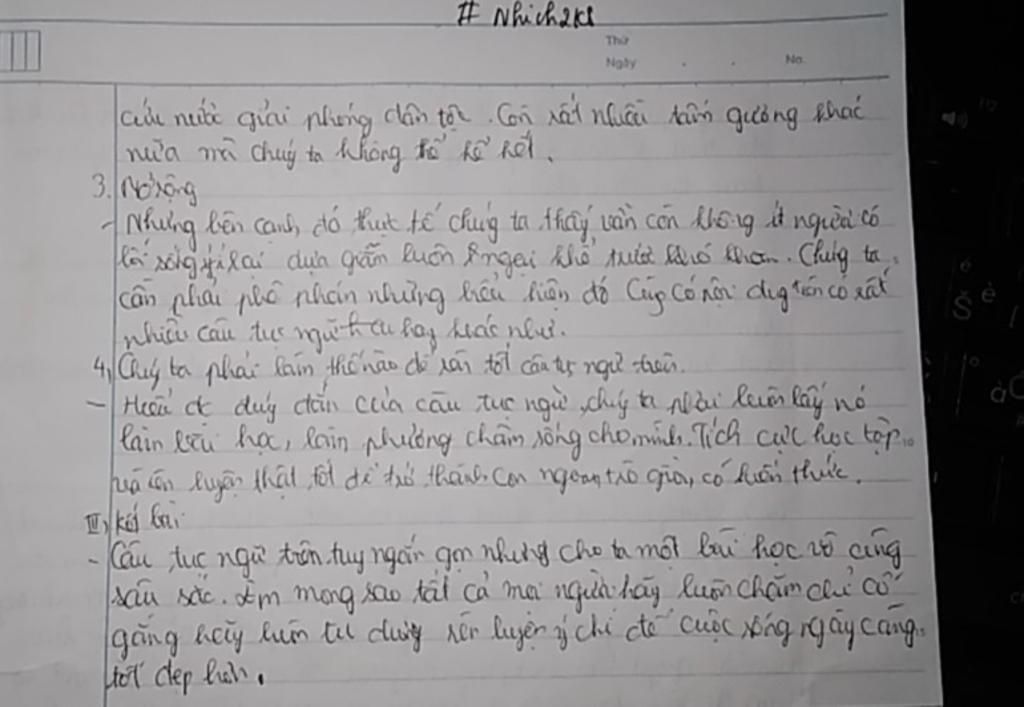 # Nhich2k8
Thứ
Ngày . . No.
cứu nước giải phóng dân tộc. Còn rất nhiều tấm gương khác
nữa mà chúg ta không thể kể hết.
3. Mở rộng
- Nhưng bên cạnh đó thực tế chúg ta thấy vẫn còn không ít người có
lối sống ỷ lại dựa giẫm luôn ngại khổ trước khó khăn. Chúg ta
cần phải phê phán những biểu hiện đó Cùg có nội dug trên có rất
nhiều câu tục ngữ hay khác như.
4, Chúg ta phải làm thế nào để rèn tốt câu tục ngữ trên.
- Hiểu đc đúg đắn của câu tục ngữ, chúg ta phải luôn lấy nó
làm bài học, làm phương châm sống cho mình. Tích cực học tập
và rèn luyện thật tốt để trở thành con ngoan, trò giỏi, có kiến thức.
III, kết bài
- Câu tục ngữ trên tuy ngắn gọn nhưng cho ta một bài học vô cùng
sâu sắc. Em mong sao tất cả mọi người hãy luôn chăm chỉ cố
gắng hãy luôn tu dưỡng rèn luyện ý chí để cuộc sống ngày càng
tốt đẹp hơn.